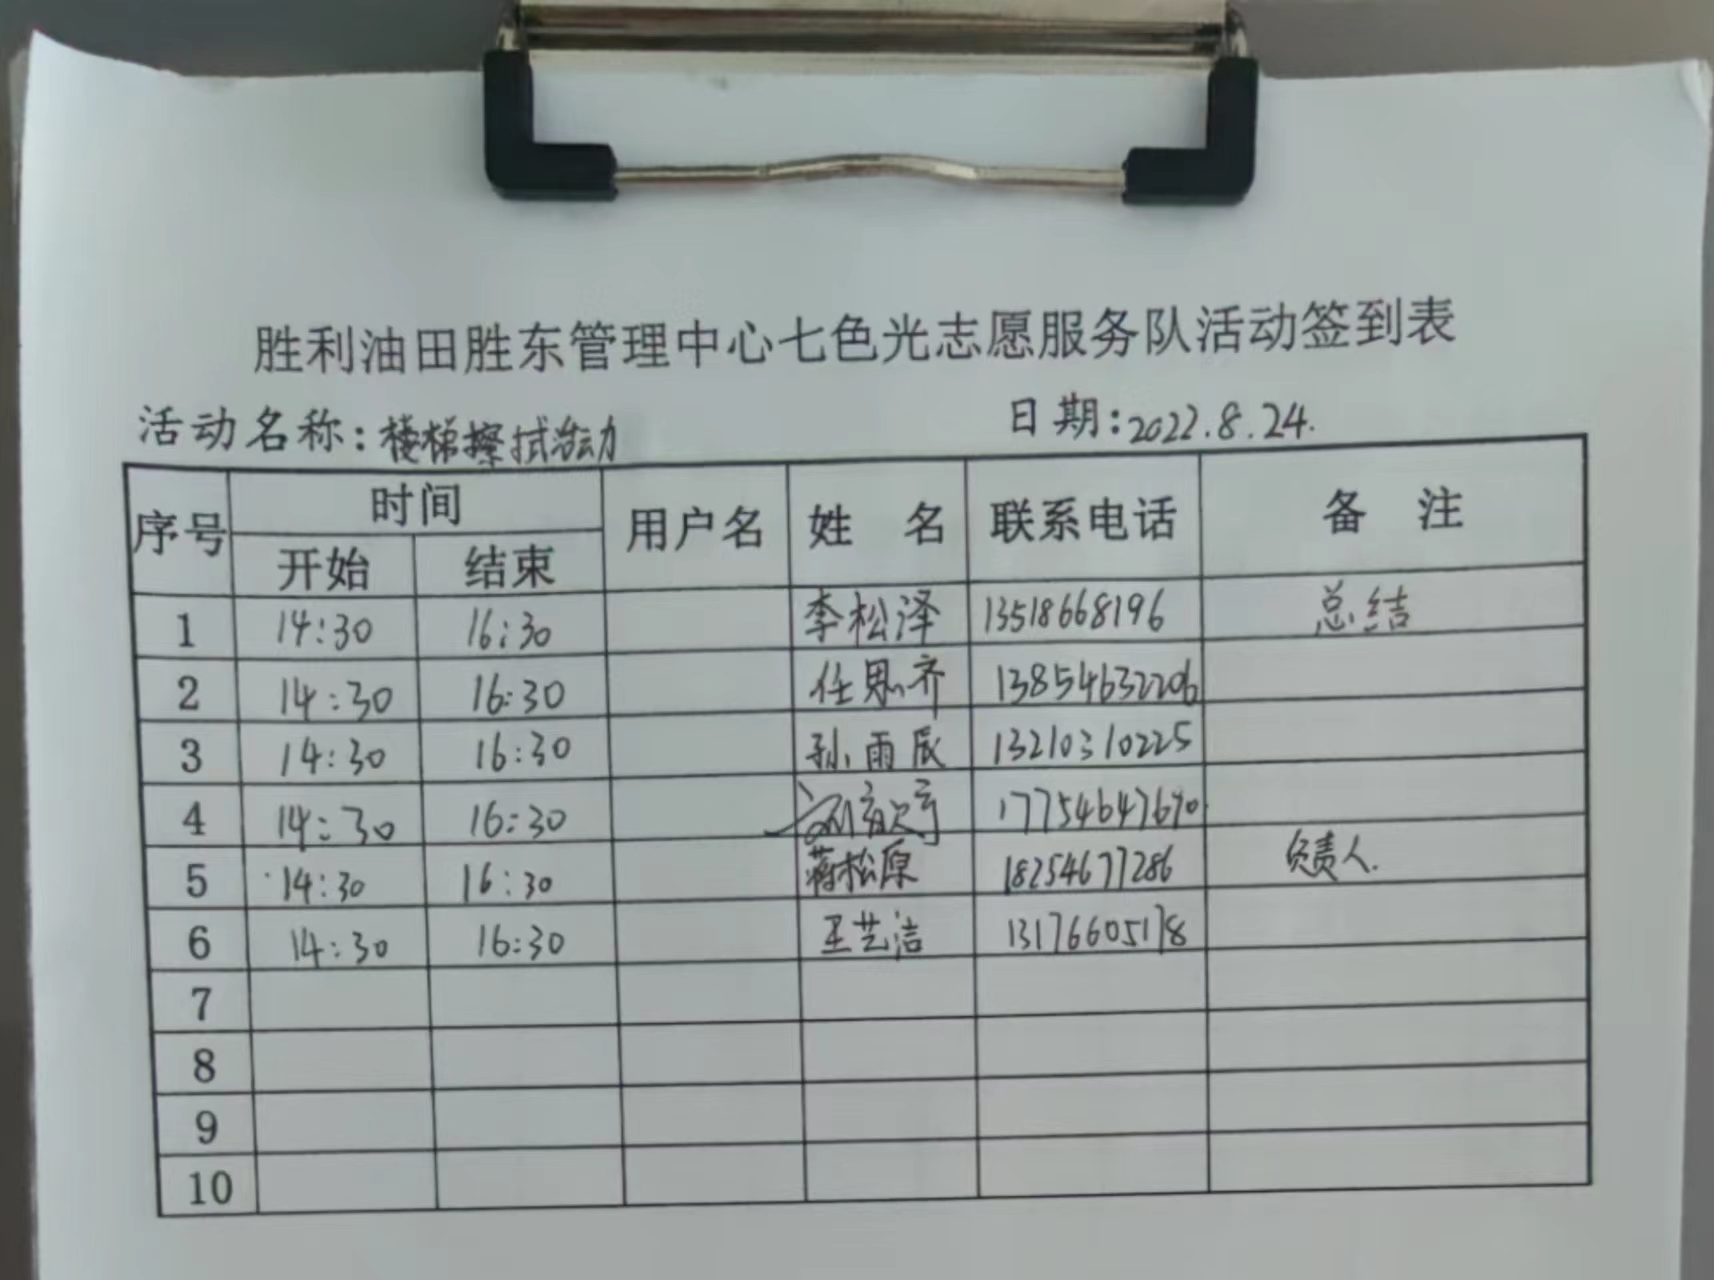 胜利油田胜东管理中心七色光志愿服务队活动签到表
活动名称:楼梯擦拭活动 日期:2022.8.24.
序号 时间 用户名 姓 名 联系电话 备 注
开始 结束
1 14:30 16:30 李松泽 13518668196 总结
2 14:30 16:30 任思齐 13854632206
3 14:30 16:30 孙雨辰 13210310225
4 14:30 16:30 17754647690
5 14:30 16:30 蒋松原 18254677286 负责人.
6 14:30 16:30 王艺洁 13176605178
7
8
9
10